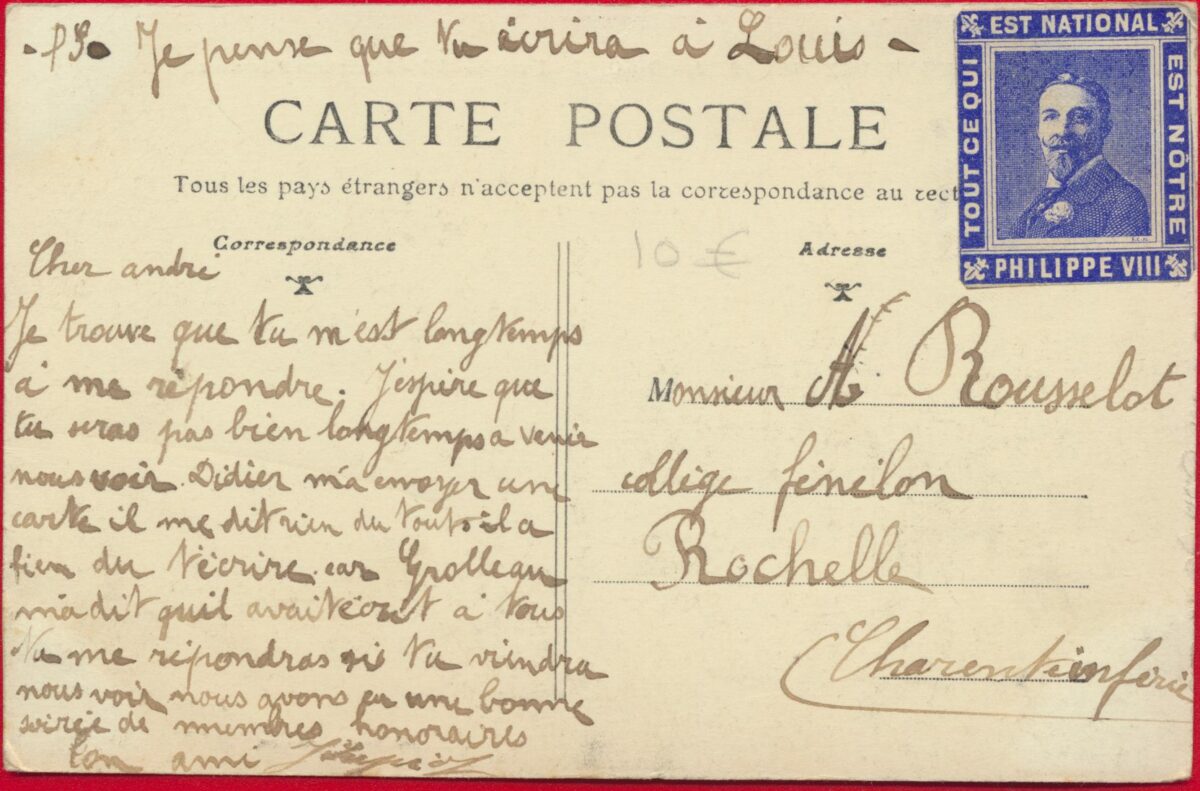 - PS. Je pense que tu écrira à Louis -
CARTE POSTALE
Tous les pays étrangers n'acceptent pas la correspondance au rect
TOUT CE QUI
EST NATIONAL
EST NÔTRE
PHILIPPE VIII
Correspondance
Adresse
10 €
Cher andré
Je trouve que tu m'est longtemps
à me répondre. J'espire que
tu seras pas bien longtemps a venir
nous voir. Didier m'a envoyer une
carte il me dit rien du tout s'il a
bien du t'écrire. car Grolleau
m'a dit quil avait écrit à tous
tu me répondras si tu viendra
nous voir nous avons eu une bonne
soirée de membres honoraires
ton ami
Monsieur A Rousselot
collège fénélon
Rochelle
Charente inférie